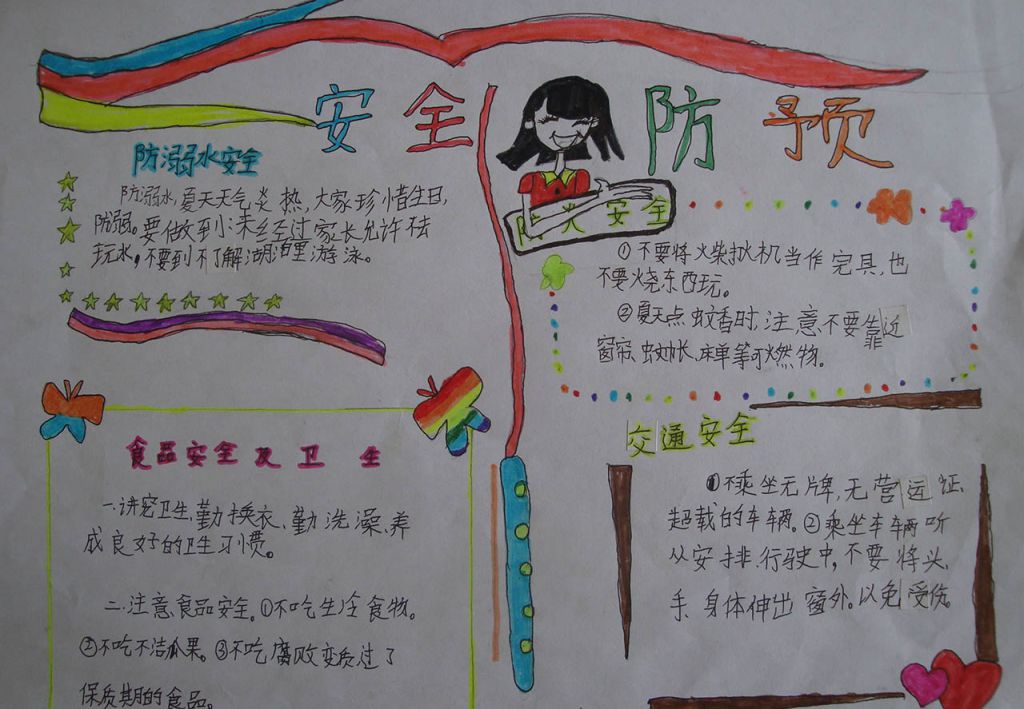 安全防预
防溺水安全
防溺水,夏天天气炎热,大家珍惜生日,
防弱。要做到:未经过家长允许不去
玩水,不要到不了解湖泊里游泳。
防火安全
①不要将火柴打火机当作完具,也
不要火烧东西玩。
②夏天点蚊香时,注意不要靠近
窗帘、蚊帐、床单等可燃物。
食品安全及卫生
一.讲究卫生、勤换衣、勤洗澡、养
成良好的卫生习惯。
二.注意食品安全。①不吃生冷食物。
②不吃不洁瓜果。③不吃腐败变质,过了
保质期的食品。
交通安全
①不乘坐无牌,无营运证、
超载的车辆。②乘坐车辆听
从安排.行驶中,不要将头、
手、身体伸出窗外.以免受伤。